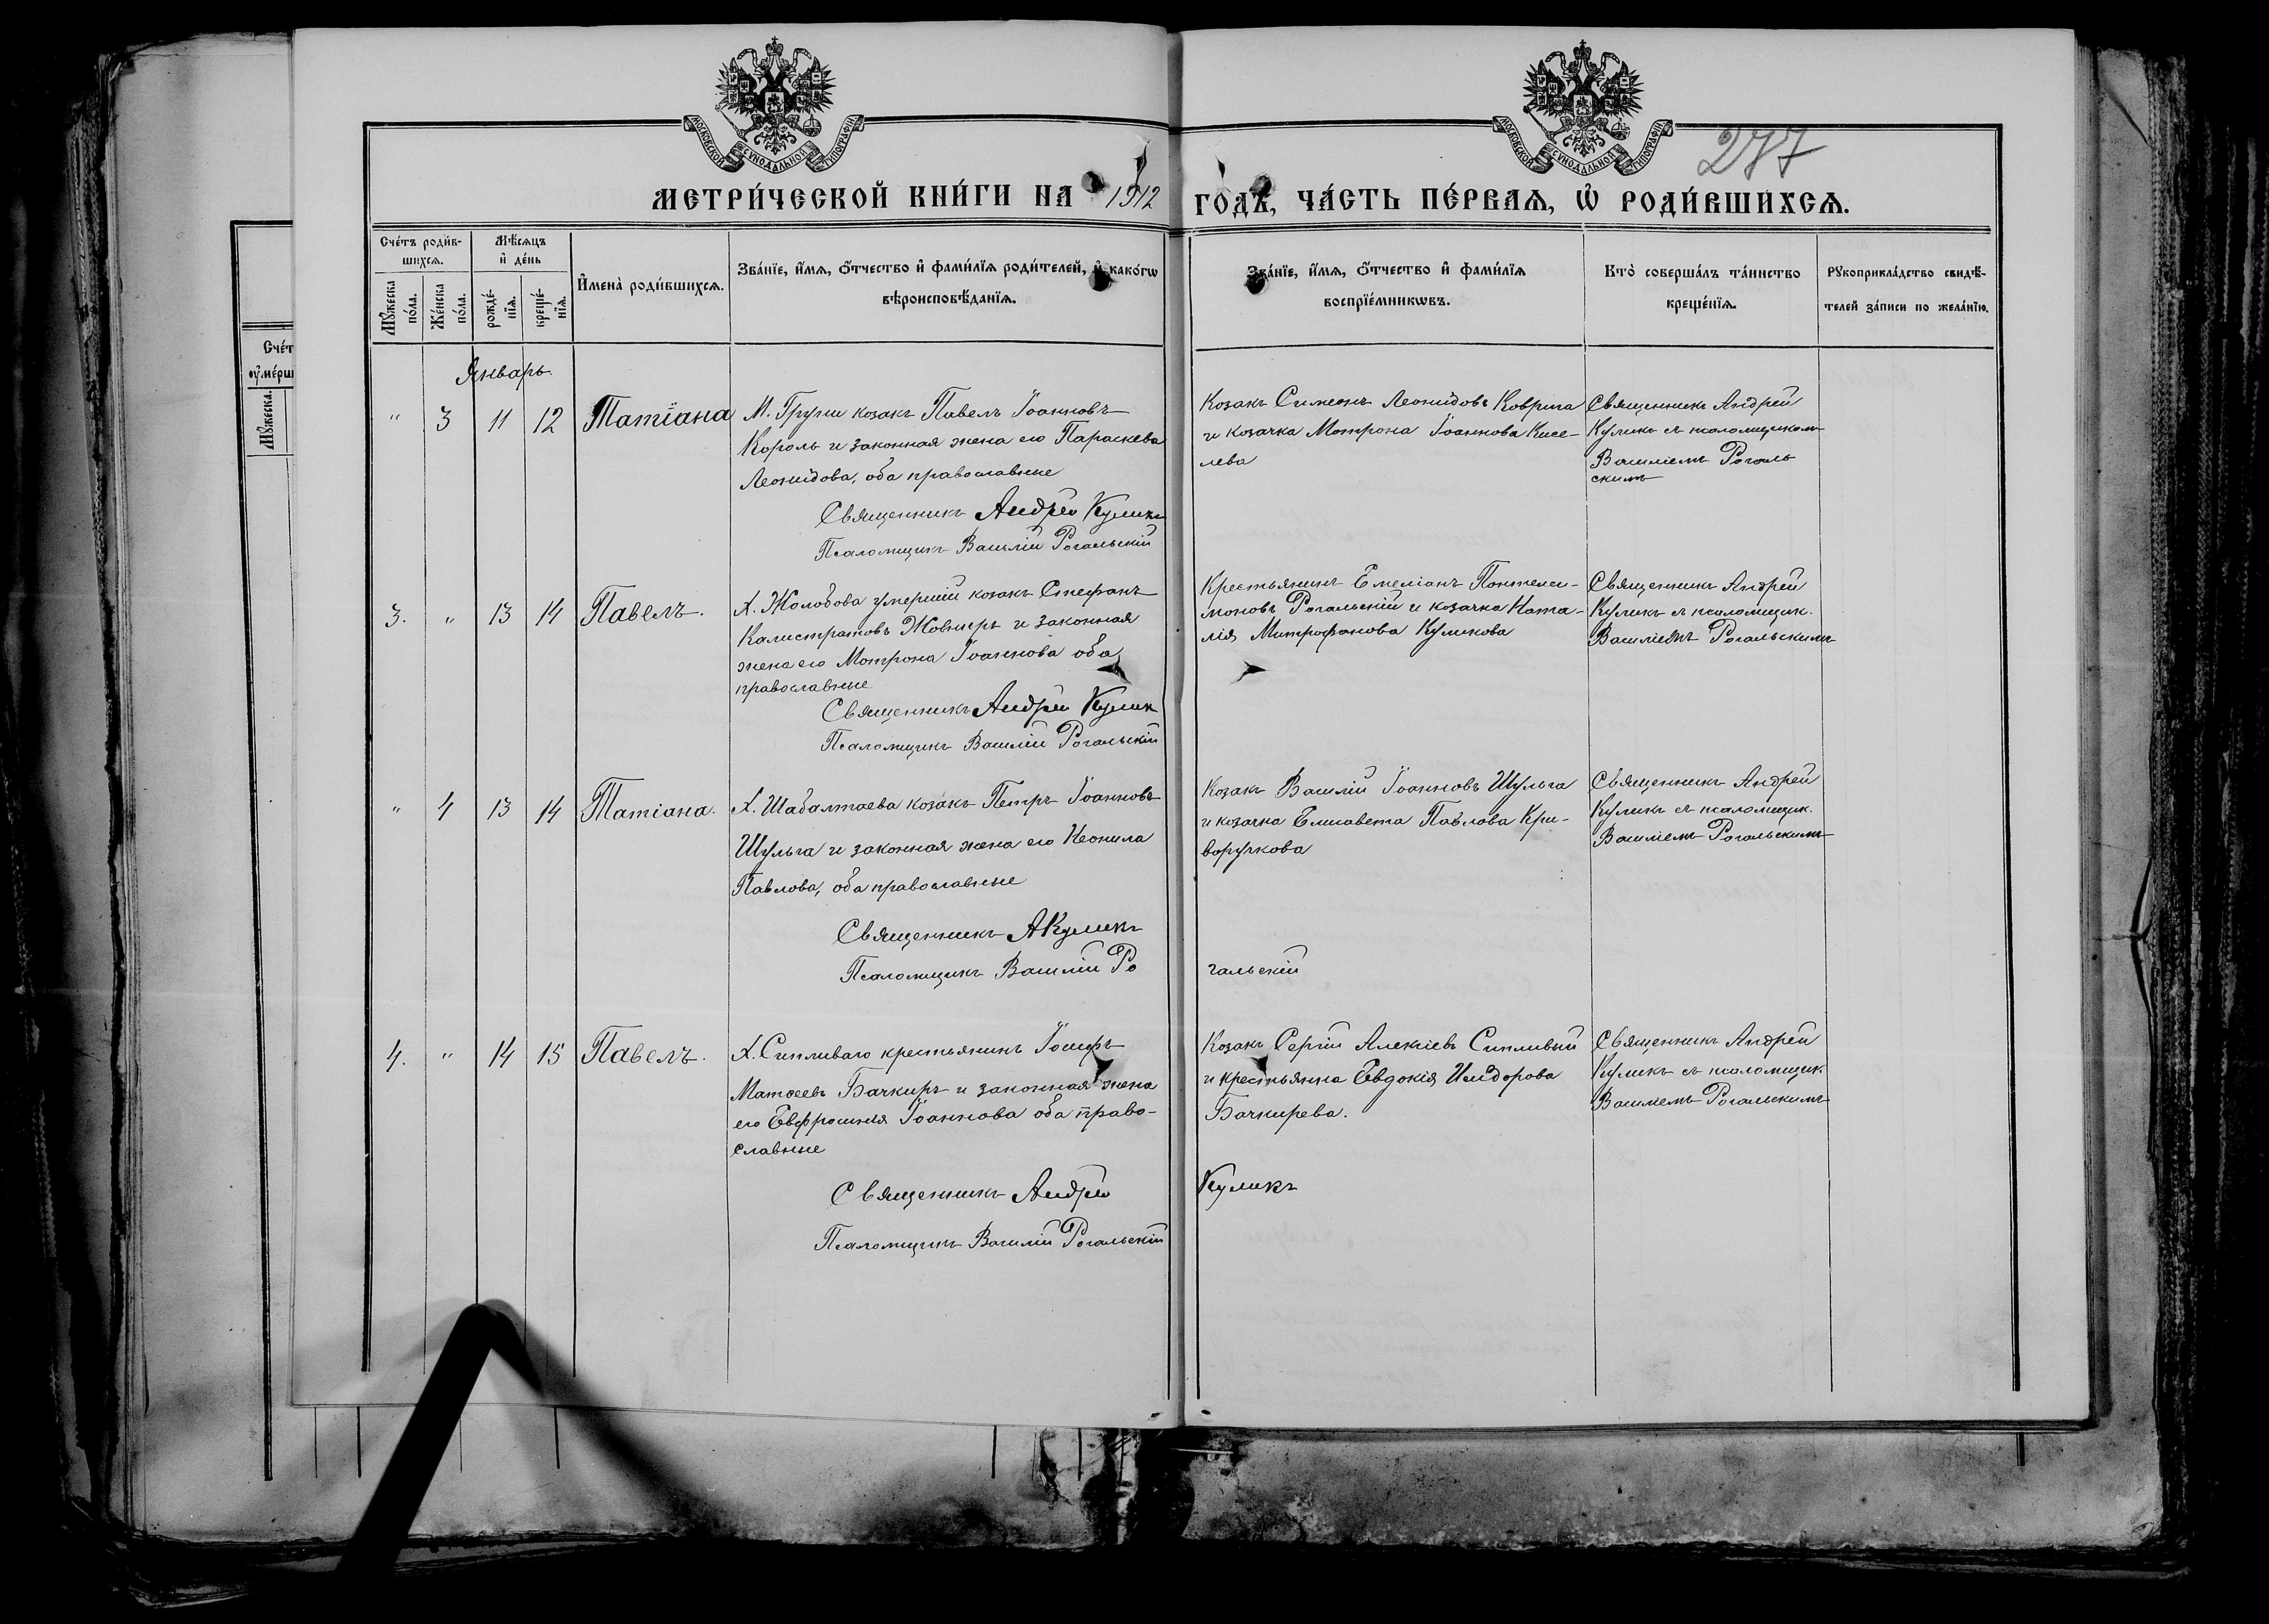 МОСКОВСКОЙ СѴНОДАЛЬНОЙ ТИПОГРАФІИ
МОСКОВСКОЙ СѴНОДАЛЬНОЙ ТИПОГРАФІИ
277
МЕТРИ́ЧЕСКОЙ КНИ́ГИ НА 1912 ГОДЪ, ЧА́СТЬ ПЕ́РВАѦ, Ѡ҆ РОДИ́ВШИХСѦ.
Сче́тъ роди́в-
шихсѧ.
Мꙋ́жеска по́ла.
Же́нска по́ла.
Мѣ́сѧцъ
и҆ де́нь
рожде́-нїѧ.
креще́-нїѧ.
И҆мена̀ роди́вшихсѧ.
Зва́нїе, и҆́мѧ, ѻ҆́тчество и҆ фами́лїѧ роди́телей, и҆ како́гѡ
вѣроисповѣ́данїѧ.
Зва́нїе, и҆́мѧ, ѻ҆́тчество и҆ фами́лїѧ
воспрїе́мникѡвъ.
Кто̀ соверша́лъ та́инство
креще́нїѧ.
Рꙋкоприкла́дство свидѣ́-
телей за́писи по жела́нїю.
Сче́т
ᲂу҆ме́рш
Мꙋ́жеска.
Январь.
" 3 11 12 Татіана
М. Груни козакъ Павелъ Іоанновъ
Король и законная жена его Параскева
Леонидова, оба православные
Священникъ Андрей Куликъ
Псаломщикъ Василій Рогальскій
Козакъ Симеонъ Леонидовъ Коврига
и козачка Мотрона Іоаннова Кисе-
лева
Священникъ Андрей
Куликъ съ псаломщикомъ
Василіемъ Рогаль
скимъ
3. " 13 14 Павелъ.
Х. Жолобова умершій козакъ Стефанъ
Калистратовъ Жовниръ и законная
жена его Мотрона Іоаннова оба
православные
Священникъ Андрей Куликъ
Псаломщикъ Василій Рогальскій
Крестьянинъ Емеліанъ Пантелеи-
моновъ Рогальскій и козачка Ната-
лія Митрофанова Куликова
Священникъ Андрей
Куликъ съ псаломщик.
Василіемъ Рогальскимъ
" 4 13 14 Татіана.
Х. Шабалтаева козакъ Петръ Іоанновъ
Шульга и законная жена его Неонила
Павлова, оба православные
Священникъ А Куликъ
Псаломщикъ Василій Ро гальскій
Козакъ Василій Іоанновъ Шульга
и козачка Елисавета Павлова Кри-
воручкова
Священникъ Андрей
Куликъ съ псаломщик.
Василіемъ Рогальскимъ
4. " 14 15 Павелъ.
Х. Сипливаго крестьянинъ Іосифъ
Матѳеевъ Бачкиръ и законная жена
его Евфросинія Іоаннова оба право-
славные
Священникъ Андрей Куликъ
Псаломщикъ Василій Рогальскій
Козакъ Сергій Алексіевъ Сипливый
и крестьянка Евдокія Исидорова
Бачкирева.
Священникъ Андрей
Куликъ съ псаломщик
Василіемъ Рогальскимъ